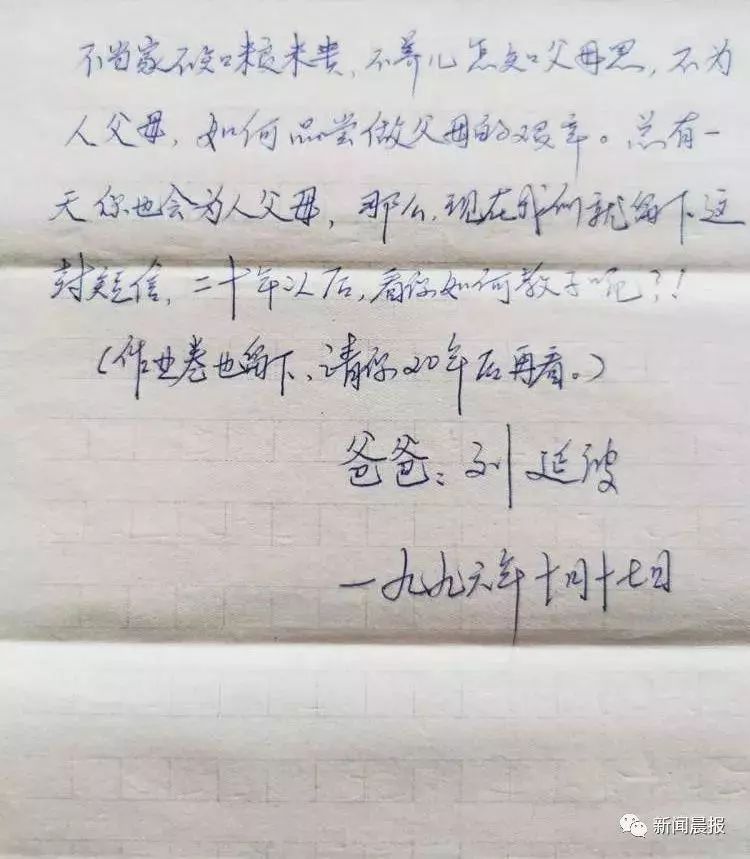 不当家不知柴米贵，不养儿怎知父母恩，不为
人父母，如何品尝做父母的艰辛。总有一
天你也会为人父母，那么，现在我们就留下这
封短信，二十年以后，看你如何教子呢？！
（作业卷也留下、请你20年后再看。）
爸爸：刘延波
一九九六年十月十七日
新闻晨报